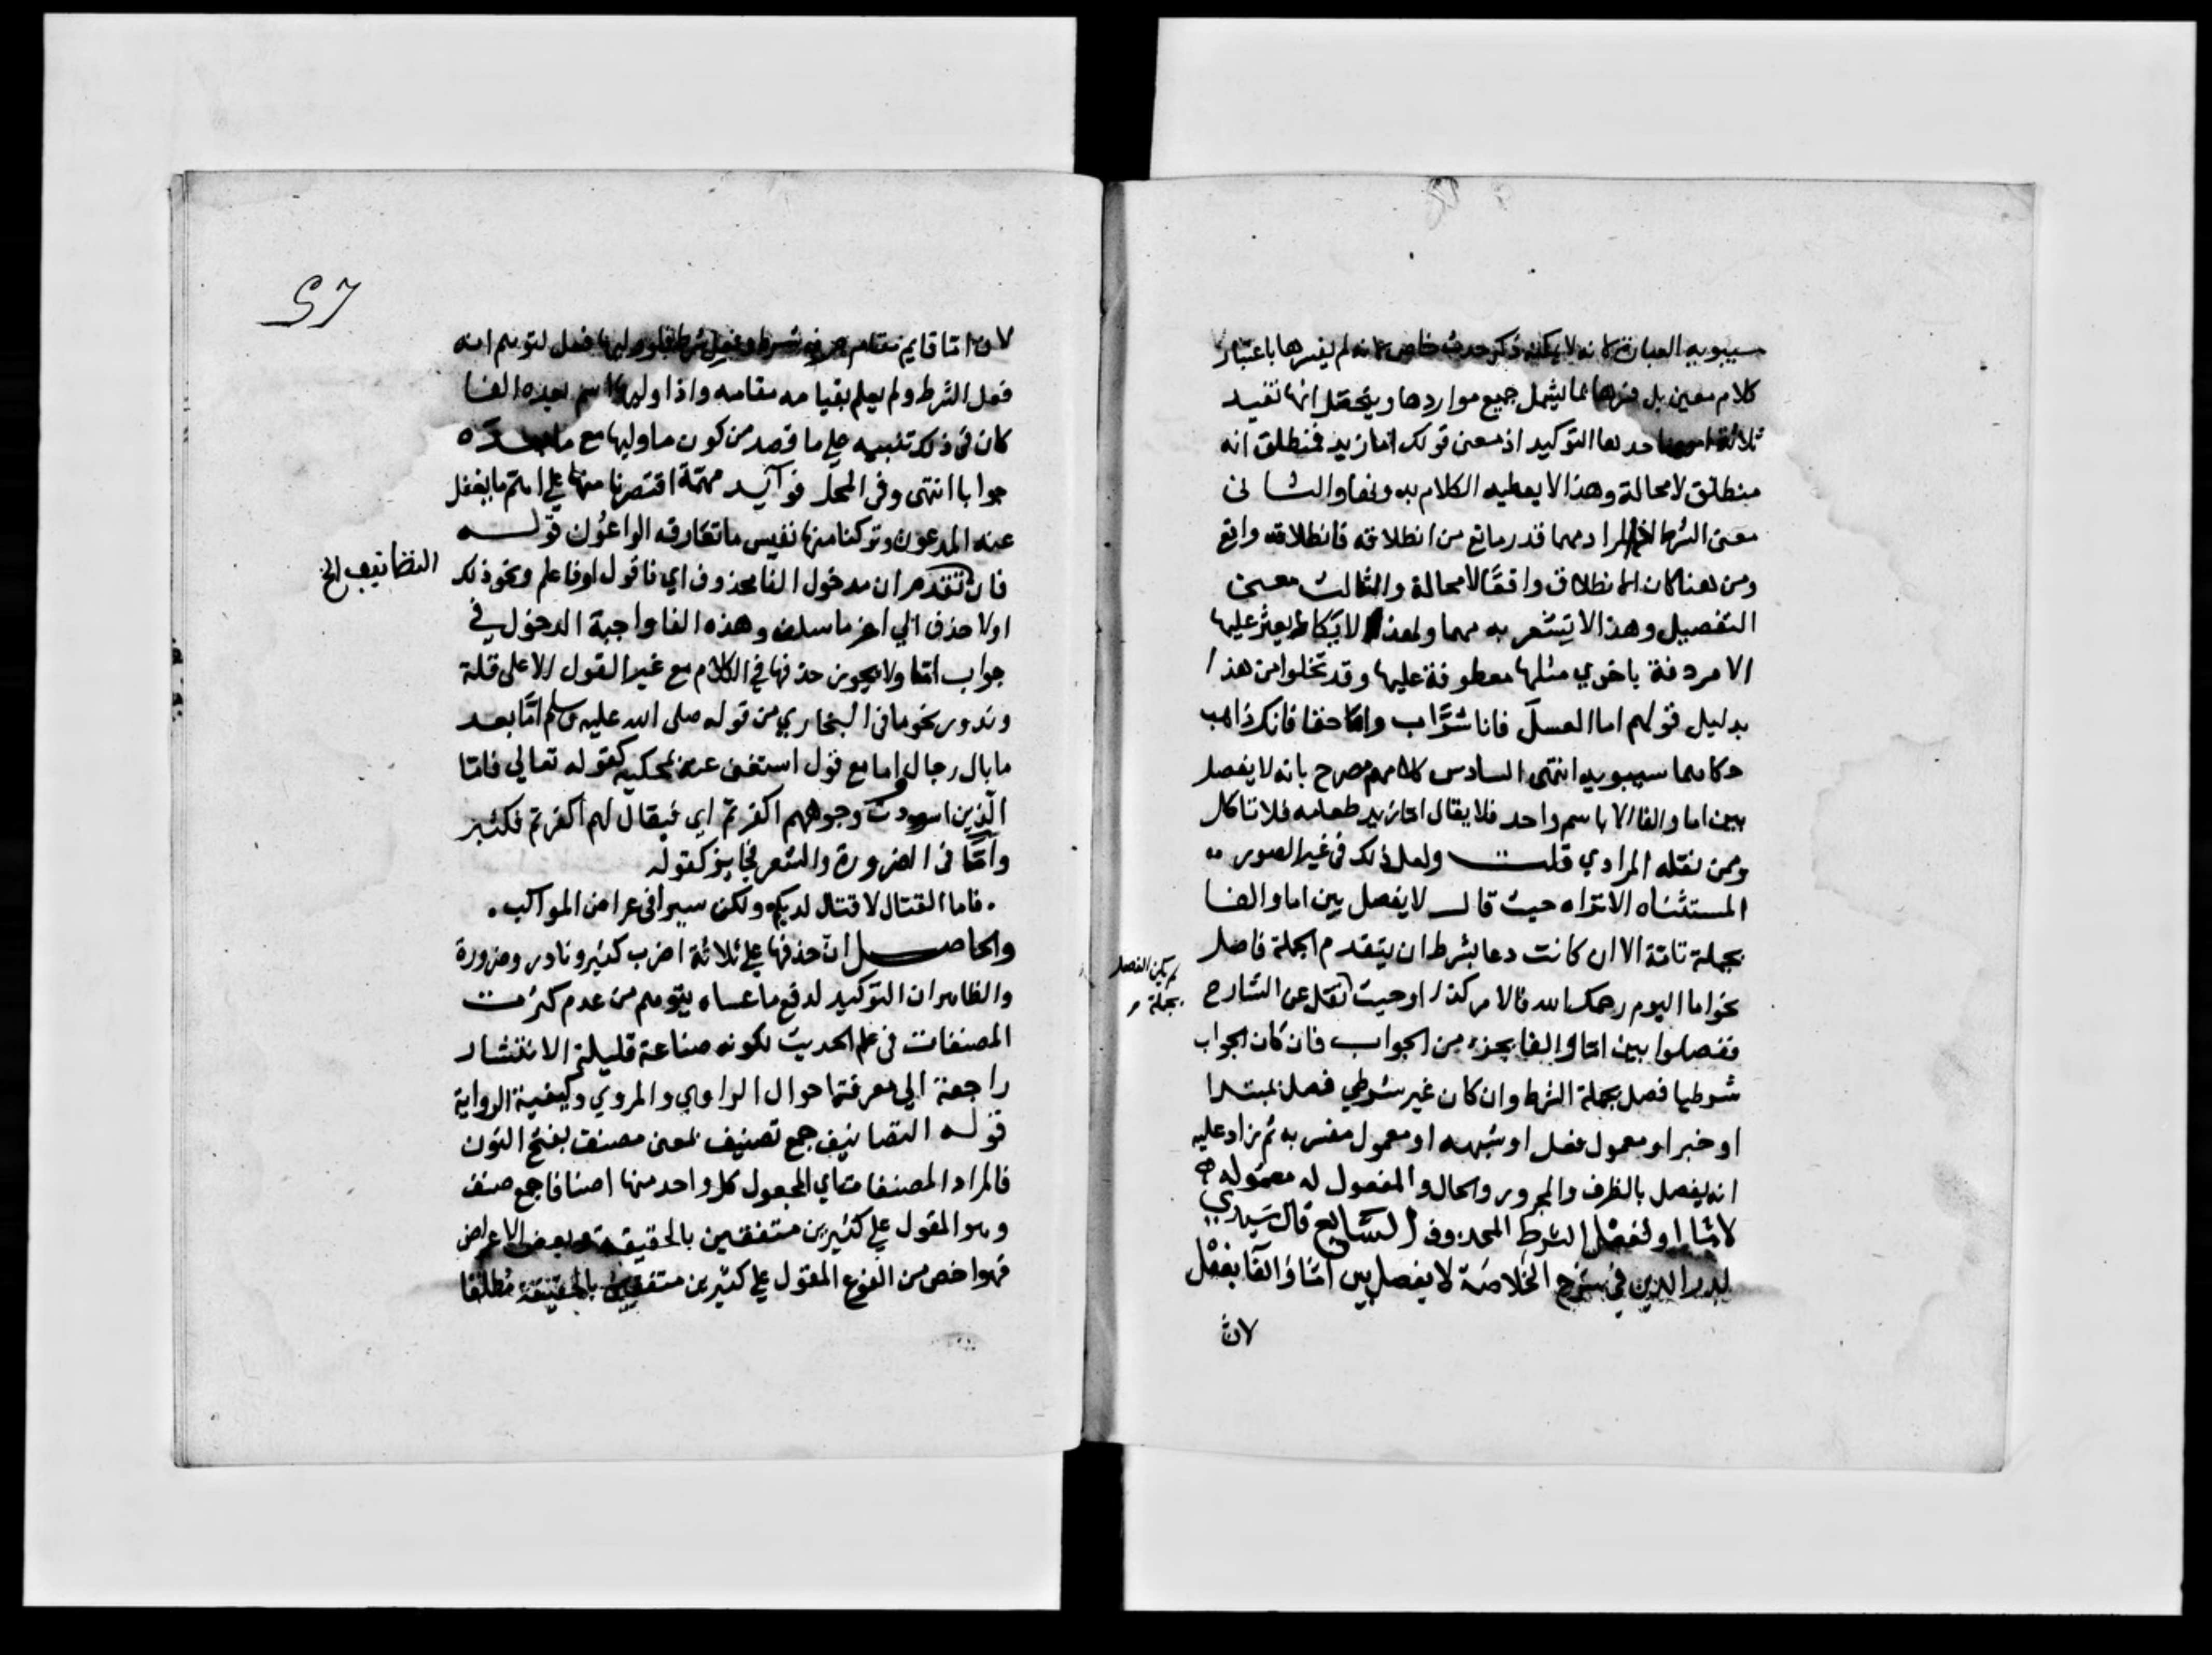 سيبويه العبارة لانه لا يمكنه ذكر حدث خاص لانه لم يفسرها باعتبار
كلام معين بل فسرها بما يشمل جميع مواردها ويتحصل انها تفيد
ثلاثة امور احدها التوكيد اذ معنى قولك اما زيد فمنطلق انه
منطلق لا محالة وهذا لا يعطيه الكلام بدونها والثانى
معنى الشرط اذ المراد مهما قدر مانع من انطلاقه فانطلاقه واقع
ومن هنا كان الانطلاق واقعًا لا محالة والثالث معنى
التفصيل وهذا لا تشعر به مهما ولهذا لا تكاد يعثر عليها
الا مردفة باخرى مثلها معطوفة عليها وقد تخلوا من هذا
بدليل قولهم اما العسل فانا شرَّاب واما حقا فانك ذاهب
حكاهما سيبويه انتهى السادس كلامهم مصرح بانه لا يفصل
بين اما والفا الا باسم واحد فلا يقال اما زيد طعامه فلا تاكل
وممن نقله المرادي قلت ولعل ذلك فى غير الصور
المستثناه الا تراه حيث قال لا يفصل بين اما والفا
بجملة تامّة الا ان كانت دعا بشرط ان يتقدم الجملة فاصل
نحو اما اليوم رحمك الله فالامر كذا او حيث نقل عن الشارح
لم يكن الفصل
بجملة
ففصلوا بين اما والفا بجزء من الجواب فان كان الجواب
شرطيا فصل بجملة الشرط وان كان غير شرطي فصل بمبتدا
او خبر او معمول فعل او شبهه او معمول مفسر به ثم زاد عليه
انه يفصل بالظرف والمجرور والحال والمفعول له معموله
لامّا او لفعل الشرط المحذوف السابع قال سيدي
بدر الدين في شرح الخلاصة لا يفصل بين امّا والفا بفعل
لانّ
٢٦
لانّ امّا قايم مقام حرف شرط وفعل شرط فلو وليها فعل لتوهم انه
فعل الشرط ولم يعلم بقيامه مقامه واذا وليها اسم بعده الفا
كان فى ذلك تنبيه على ما قصد من كون ما وليها مع ما بعده
جوابا انتهى وفى المحل فوآيد مهمّة اقتصرنا منها على اهم ما يغفل
عنه المدعون وتركنا منها نفيس ما تعارفه الواعون قوله
التضانيف الخ
فان تقدم ان مدخول الفا محذوف اي فاقول او فاعلم ونحو ذلك
اولا حذف الي اخر ما سلف وهذه الفا واجبة الدخول في
جواب امّا ولا يجوز حذفها في الكلام مع غير القول الا على قلة
وندور نحو ما فى البخاري من قوله صلى الله عليه وسلم امّا بعد
ما بال رجال واما مع قول استغنى عنه بمحكيه كقوله تعالي فامّا
الّذين اسودت وجوههم اكفرتم اي فيقال لهم اكفرتم فكثير
وامّا فى الضرورة والشعر فجايز كقوله
. فاما القتال لا قتال لديكم ولكن سيرا فى عراض المواكب .
والحاصل انّ حذفها على ثلاثة اضرب كثير ونادر وضرورة
والظاهر ان التوكيد لدفع ما عساه يتوهم من عدم كثرت
المصنفات فى علم الحديث لكونه صناعة قليلة الانتشار
راجعة الى معرفة احوال الراوي والمروي وكيفية الرواية
قوله التصانيف جمع تصنيف بمعنى مصنف بفتح النون
فالمراد المصنفات اي المجعول كل واحد منها اصنافا جمع صنف
وهو المقول على كثيرين متفقين بالحقيقة وبعض الاعراض
فهو اخص من النوع المقول على كثيرين متفقين بالحقيقة مطلقا